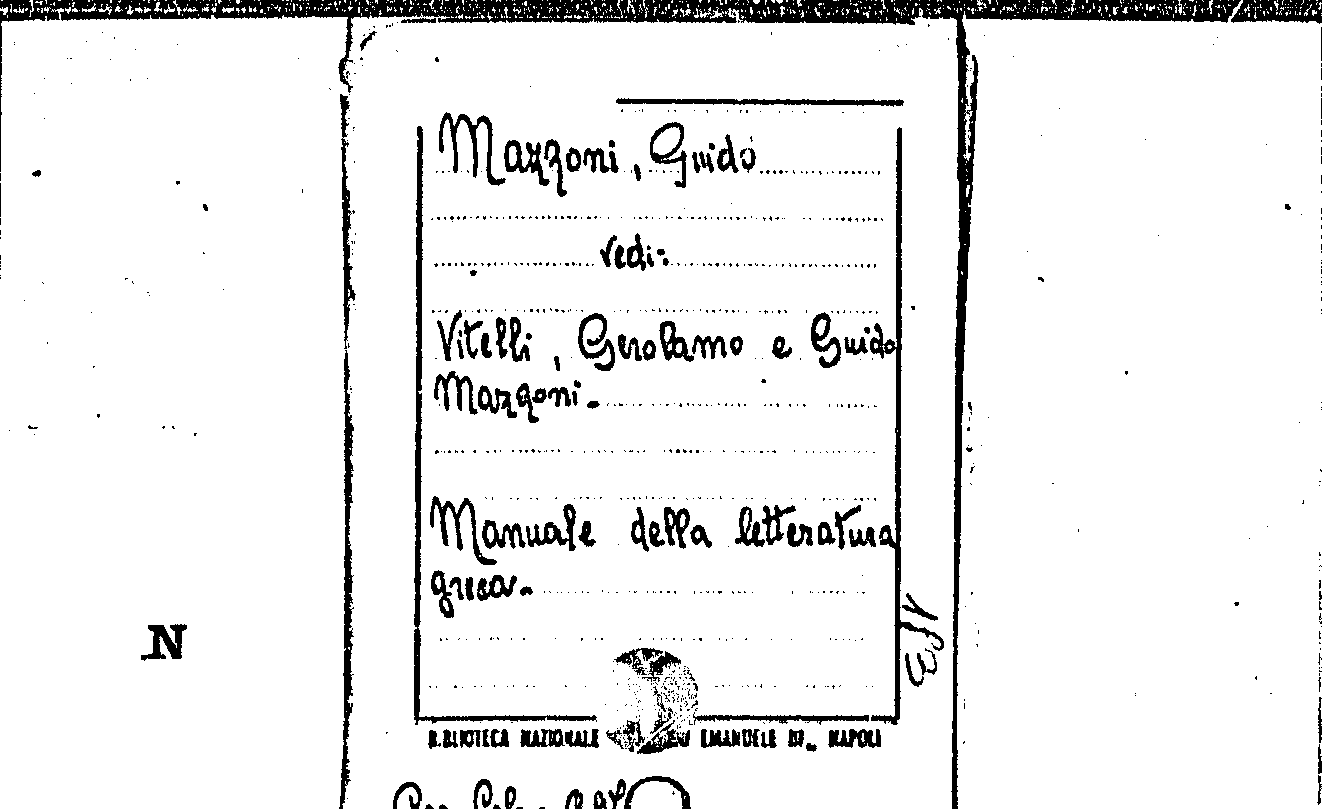 Mazzoni, Guido
vedi:
Vitelli, Gerolamo e Guido
Mazzoni.
Manuale della letteratura
greca.
N
BIBLIOTECA NAZIONALE EMANUELE III_ NAPOLI